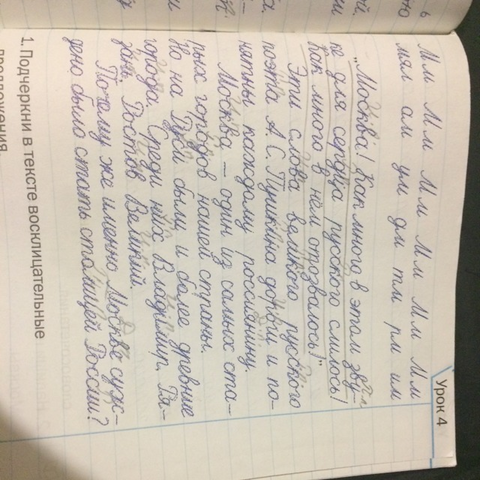 Урок 4
Мм Мм Мм Мм Мм Мм Мм
мял ам ум дм тм рм им
„Москва! Как много в этом зву-
ке для сердца русского слилось!
Как много в нём отозвалось!"
Эти слова великого русского
поэта А. С. Пушкина дороги и по-
нятны каждому россиянину.
Москва – один из самых ста-
рых городов нашей страны.
Но на Руси были и более древние
города. Среди них Владимир, Ря-
зань, Ростов Великий.
Почему же именно Москве суж-
дено было стать столицей России?
1. Подчеркни в тексте восклицательные
предложения.